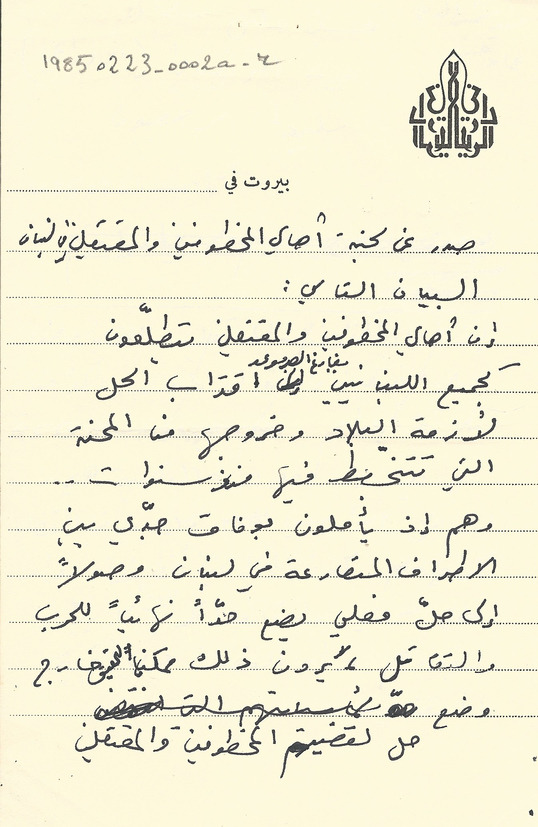 19850223_0002a_r
بيروت في
صدر عن لجنة أهالي المخطوفين والمعتقلين في لبنان
البيان التالي :
إن أهالي المخطوفين والمعتقلين يتطلّعون
كجميع اللبنانيين بفارغ الصبر اقتراب الحل
لأزمة البلاد وخروجها من المحنة
التي تتخبّط فيها منذ سنوات ..
وهم إذ يأملون بوفاق جدّي بين
الاطراف المتصارعة في لبنان وصولاً
إلى حلّ فعلي يضع حدّاً نهائياً للحرب
والتقاتل لا يرون ذلك ممكناً خارج
وضع
حل لقضية المخطوفين والمعتقلين